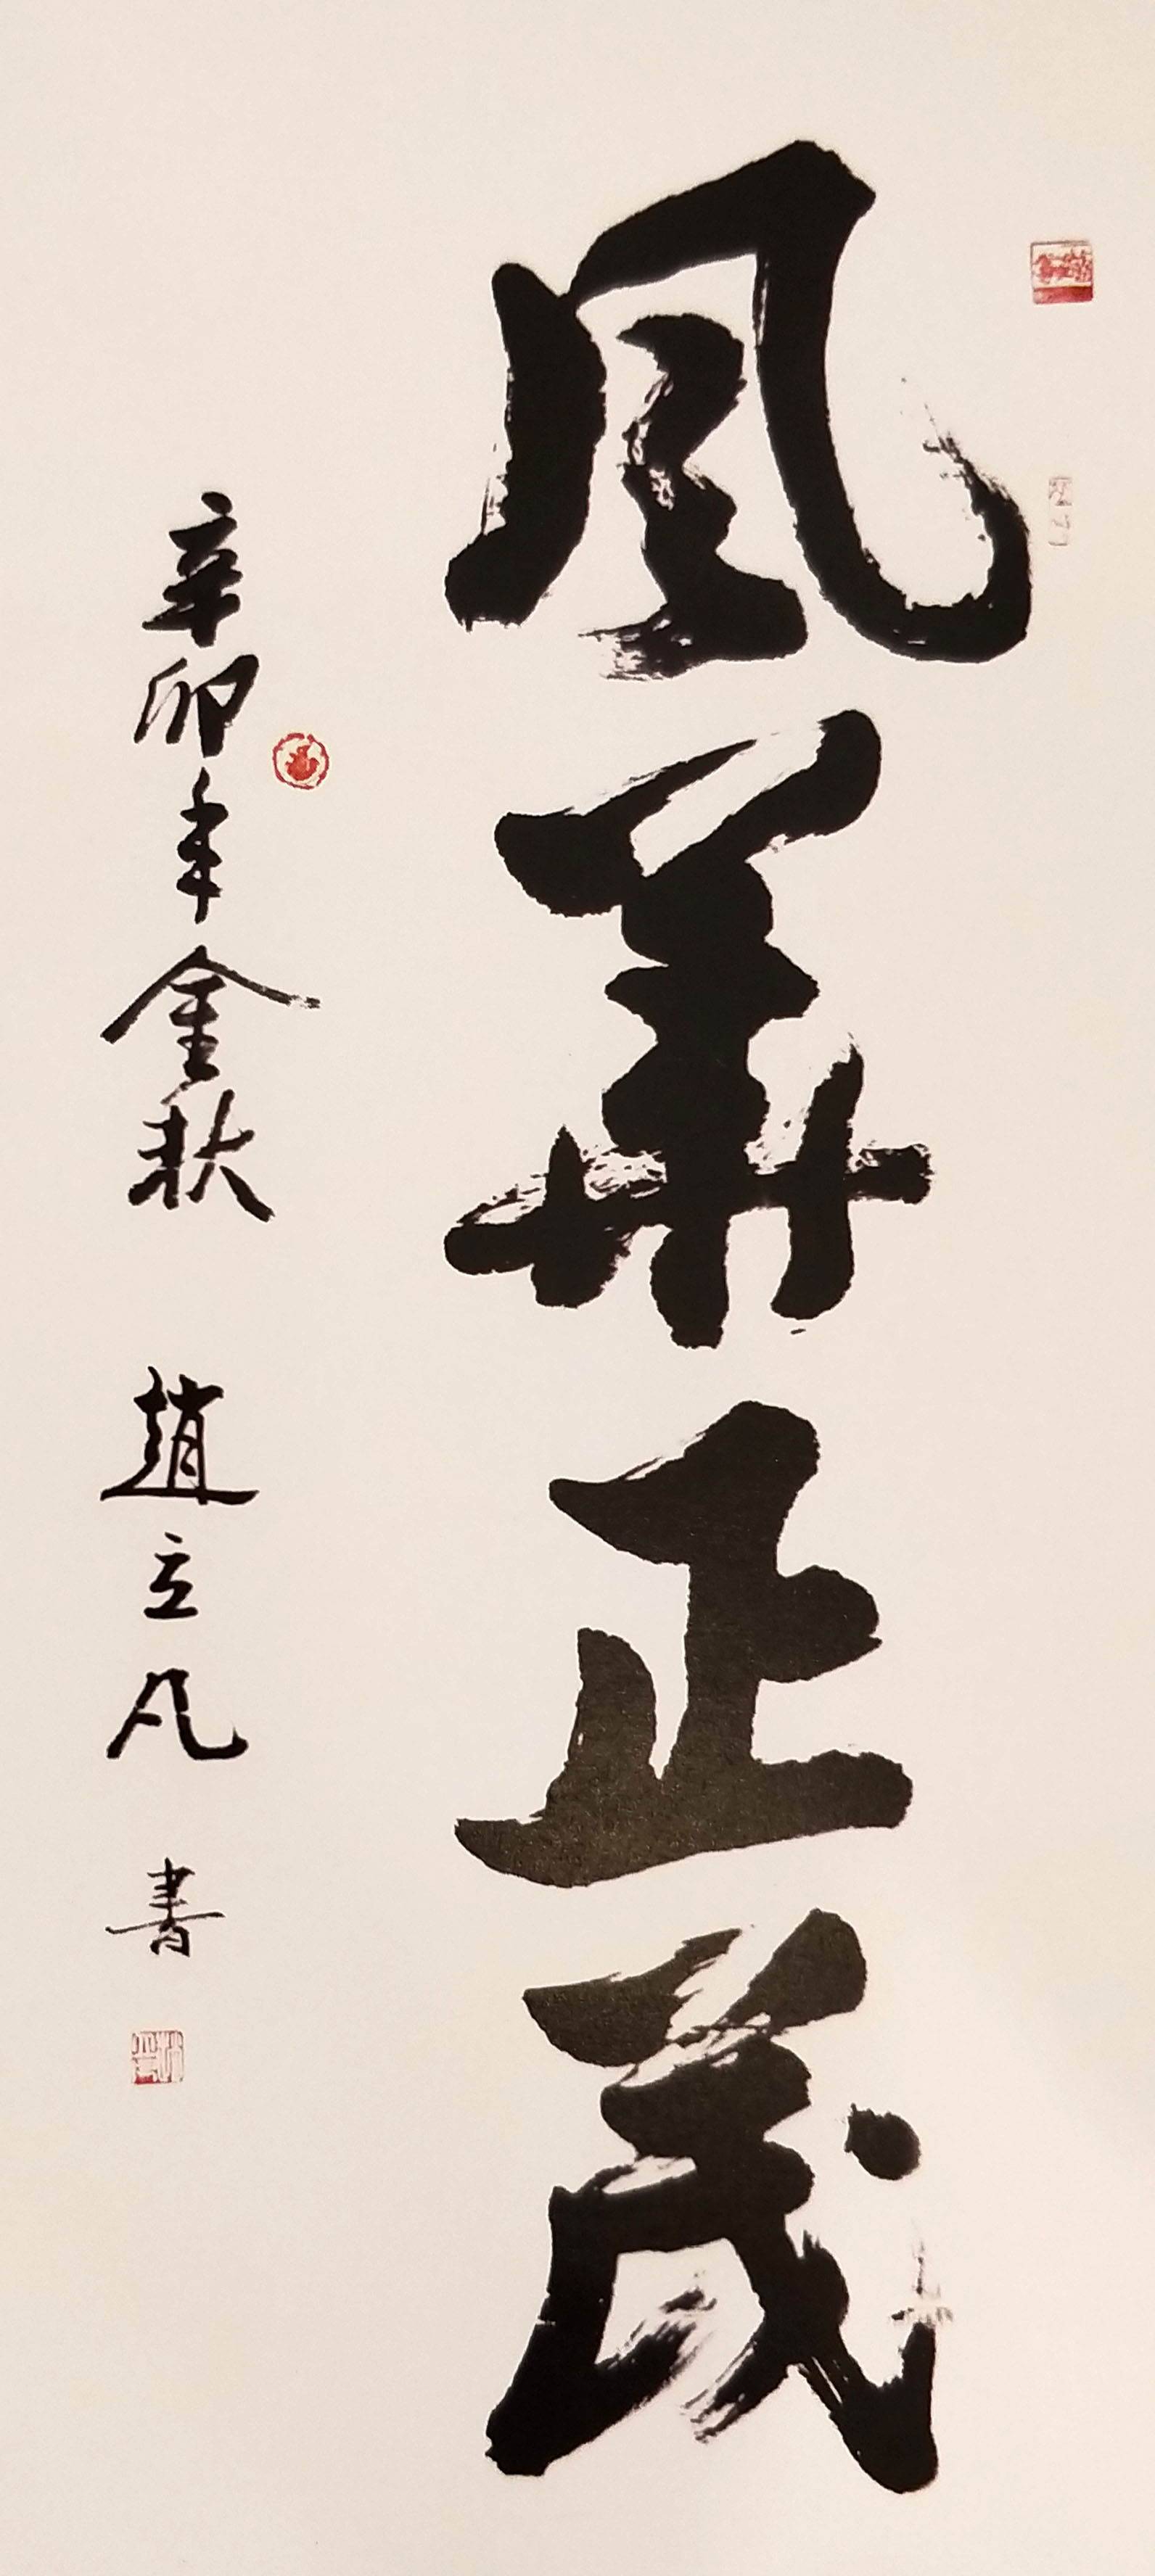 風華正茂
辛卯年金秋 趙立凡 書